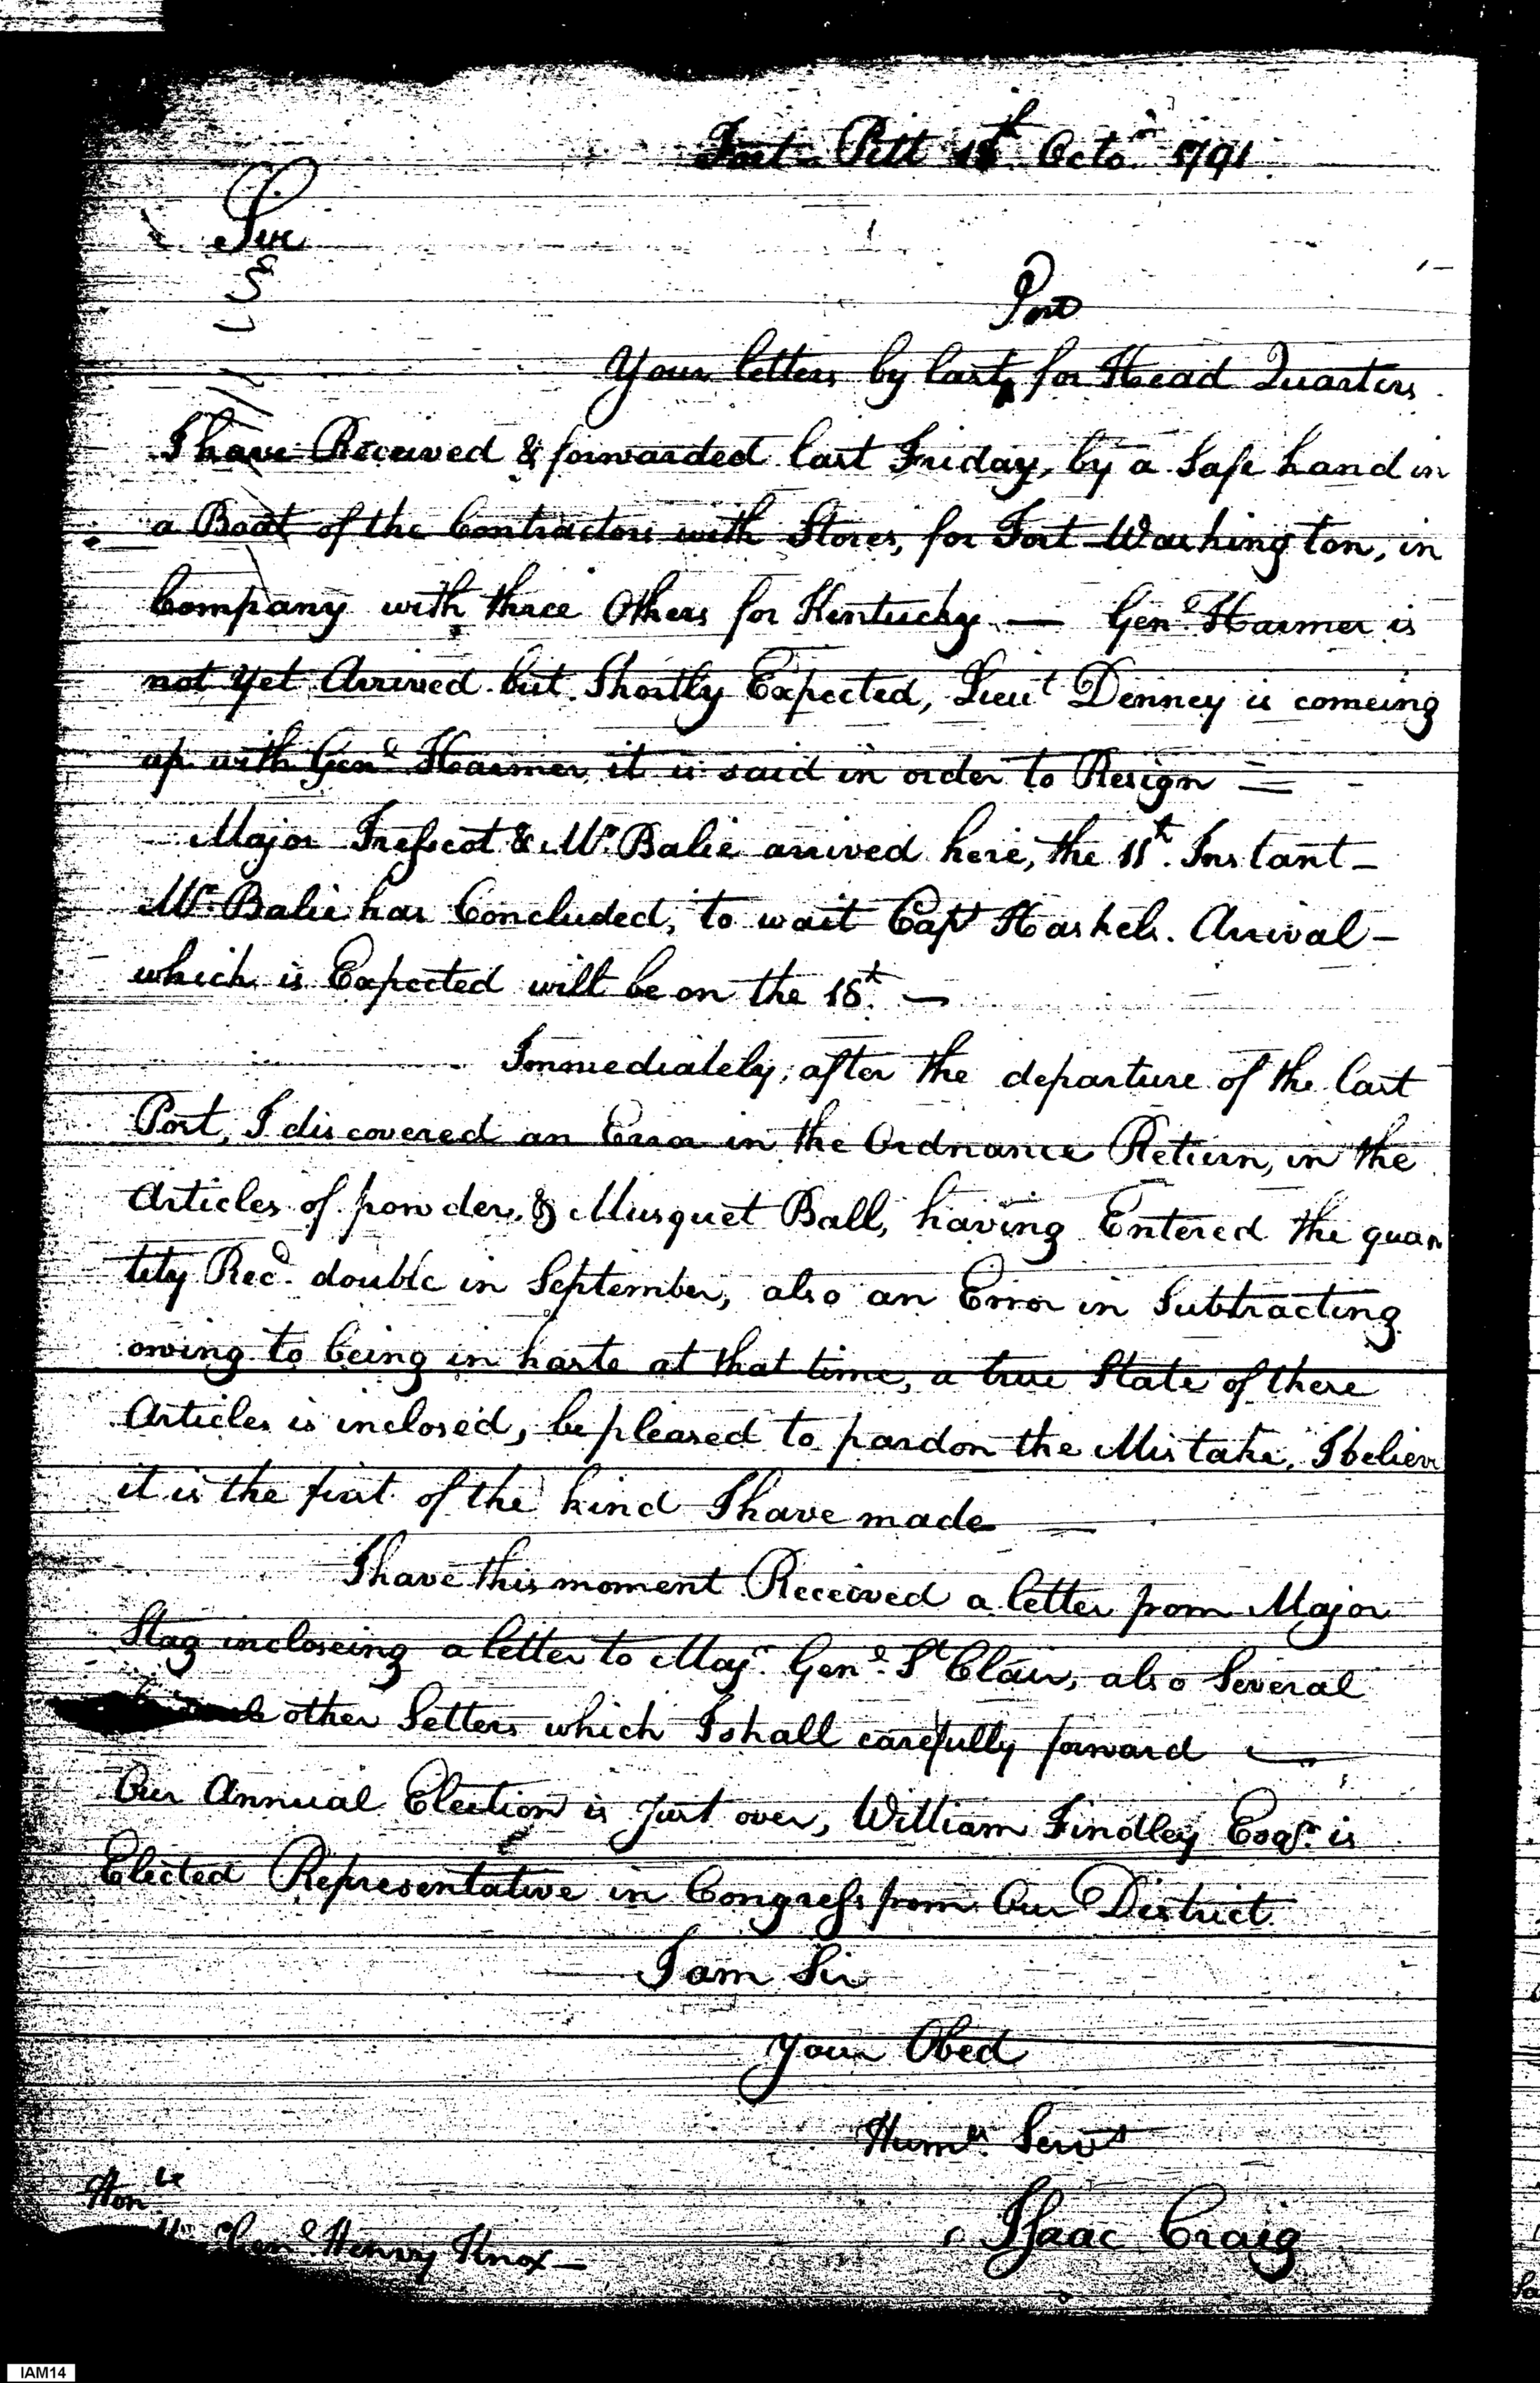 Fort Pitt Octo.r 1791
Sir
Post
Your letters by last for Head Quarters
I have Received & forwarded last Friday, by a Safe hand in
a Boat of the Contractors with Stores, for Fort Washington, in
Company with three Others for Kentucky — Gen.l Harmer is
not yet Arrived but Shortly Expected, Lieut Denney is comeing
up with Gen.l Harmer, it is said in order to Resign =
Major Trescot & Mr. Balie arrived here, the 11t. Instant —
Mr. Balie has Concluded, to wait Capt Haskels. Arrival —
which is Expected will be on the t. —
Immediately, after the departure of the last
Post, I discovered an Error in the Ordnance Return, in the
Articles of powder, & Musquet Ball, having Entered the quan
tity Rec.d double in September, also an Error in Subtracting
owing to being in haste at that time, a true State of these
Articles is inclosed, be pleased to pardon the Mistake, I believe
it is the first of the kind I have made —
I have this moment Received a letter from Major
Stag incloseing a letter to Maj.r Gen.l St Clair, also Several
other Letters which I shall carefully forward —
Our Annual Election is Just over, William Findley Esqr. is
Elected Representative in Congress from Our District
I am Sir
Your Obed
Hum.le Servt
Isaac Craig
Honle
Gen.l Henry Knox —
IAM14